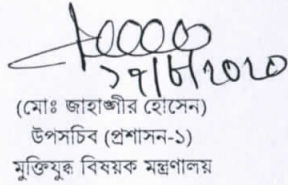 ১৭/৮/২০২০
(মোঃ জাহাঙ্গীর হোসেন)
উপসচিব (প্রশাসন-১)
মুক্তিযুদ্ধ বিষয়ক মন্ত্রণালয়